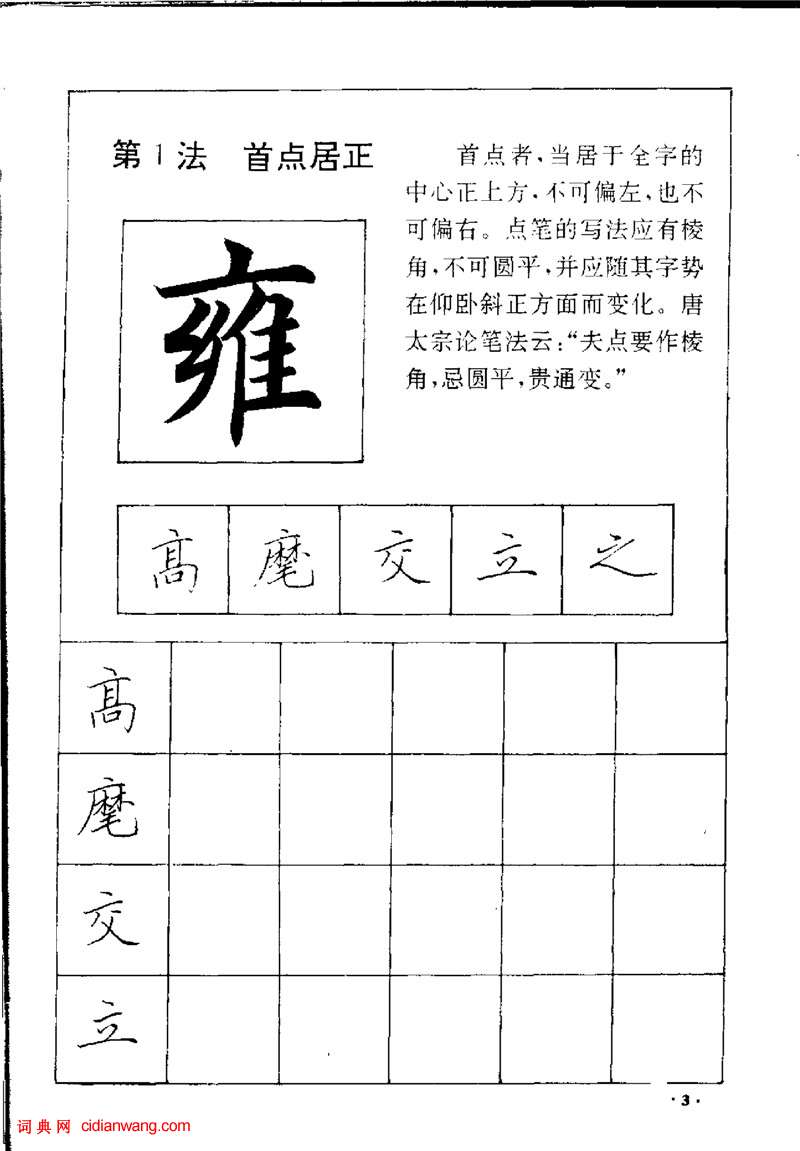 第1法 首点居正
首点者,当居于全字的
中心正上方,不可偏左,也不
可偏右。点笔的写法应有棱
角,不可圆平,并应随其字势
在仰卧斜正方面而变化。唐
太宗论笔法云:“夫点要作棱
角,忌圆平,贵通变。”
雍
髙 麾 交 立 之
髙
麾
交
立
·3·
词典网 cidianwang.com